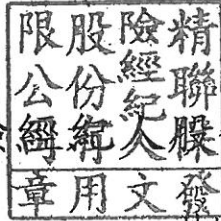 精聯
險經紀人
股份
限公
發文用章